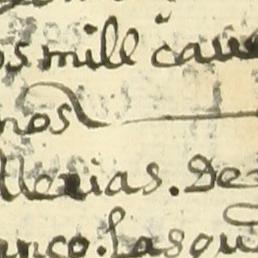 os mill caue
nos
llerias. De
anco. las qu